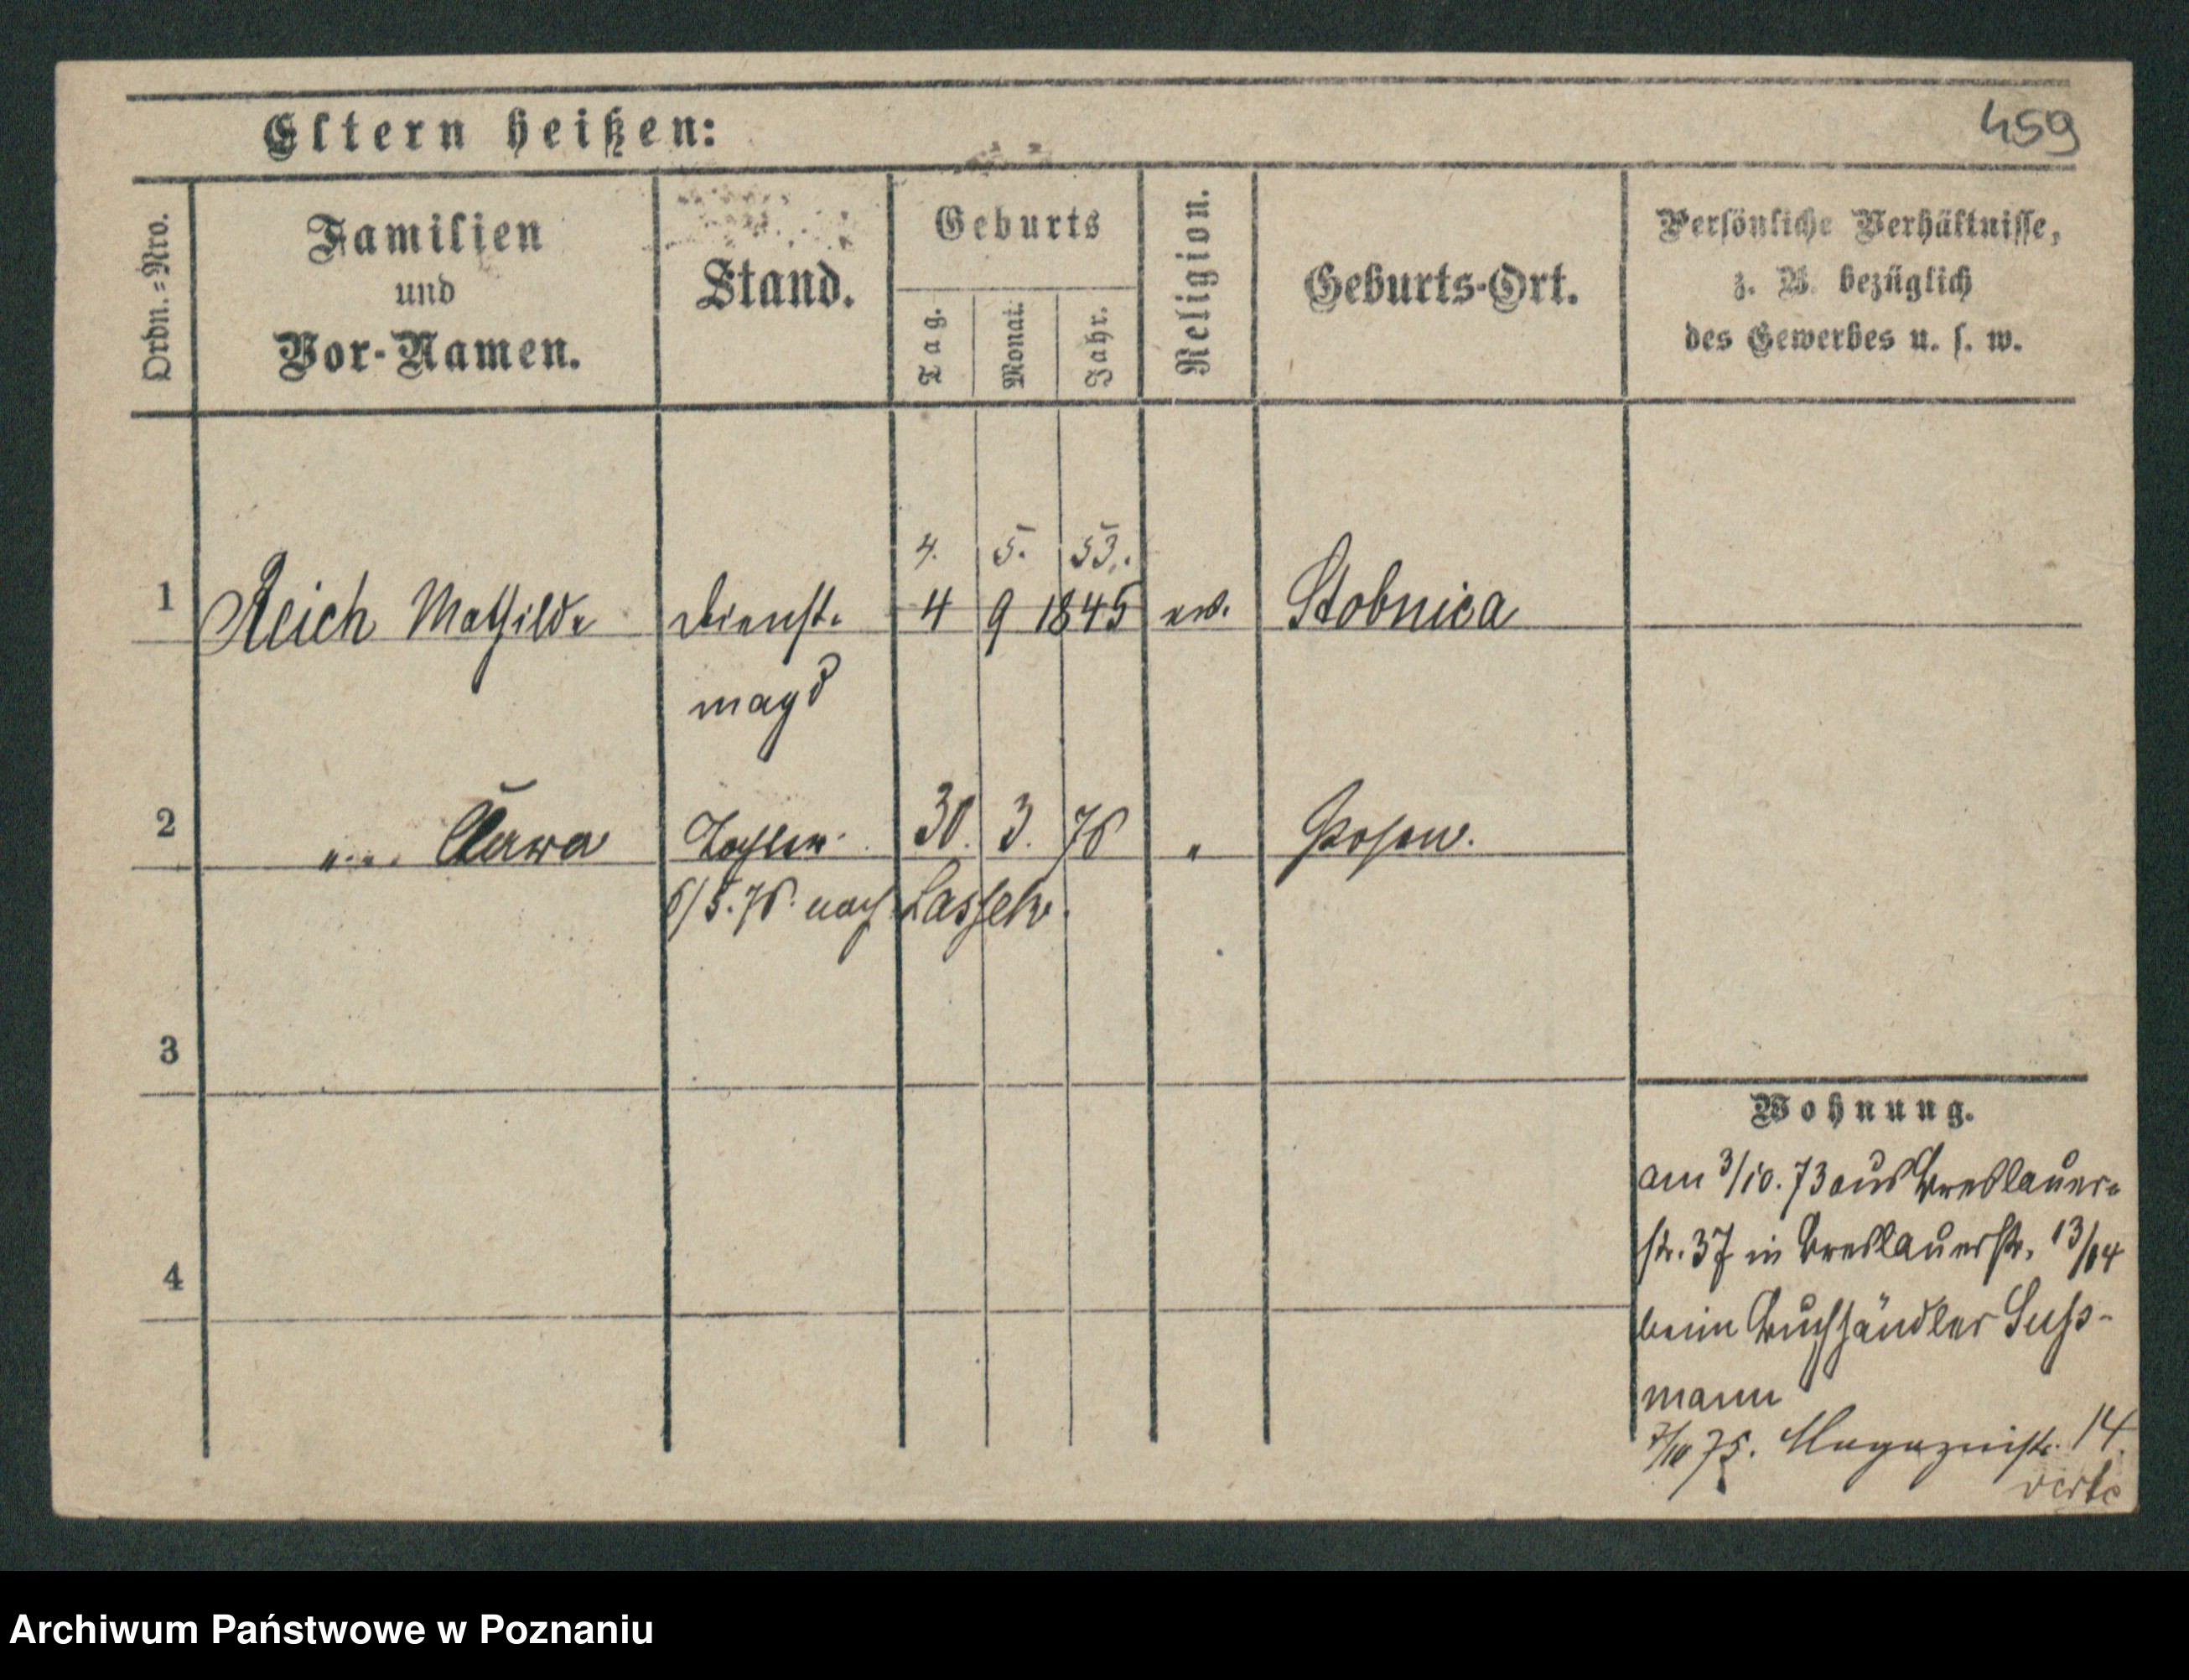 Eltern heißen:
459
Ordn.=Nro.
Familien
und
Vor-Namen.
Stand.
Geburts
Tag.
Monat.
Jahr.
Religion.
Geburts-Ort.
Persönliche Verhältnisse,
z. B. bezüglich
des Gewerbes u. s. w.
4. 5. 53.
1 Reich Mathilde Dienst- 4 9 1845 ev. Stobnica
magd
2 " " Clara Tochter 30. 3. 76 " Posen.
6/5.76. nach Lassek.
3
4
Wohnung.
am 3/10. 73 aus Breslauer-
str. 37 in Breslauerstr. 13/14
beim Buchhändler Suss-
mann
7/10 75. Magazinstr. 14.
verte
Archiwum Państwowe w Poznaniu